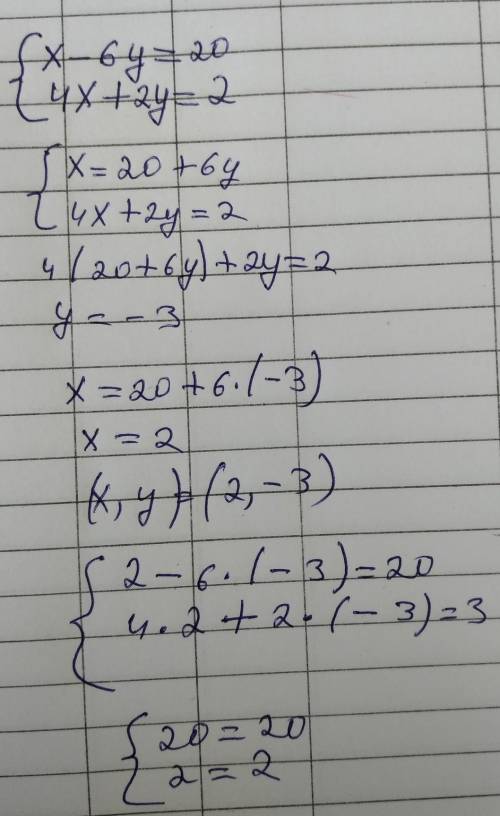 { x - 6y = 20
4x + 2y = 2
{ x = 20 + 6y
4x + 2y = 2
4(20 + 6y) + 2y = 2
y = - 3
x = 20 + 6 · (-3)
x = 2
(x, y) = (2, -3)
{ 2 - 6 · (-3) = 20
4 · 2 + 2 · (-3) = 3
{ 20 = 20
2 = 2